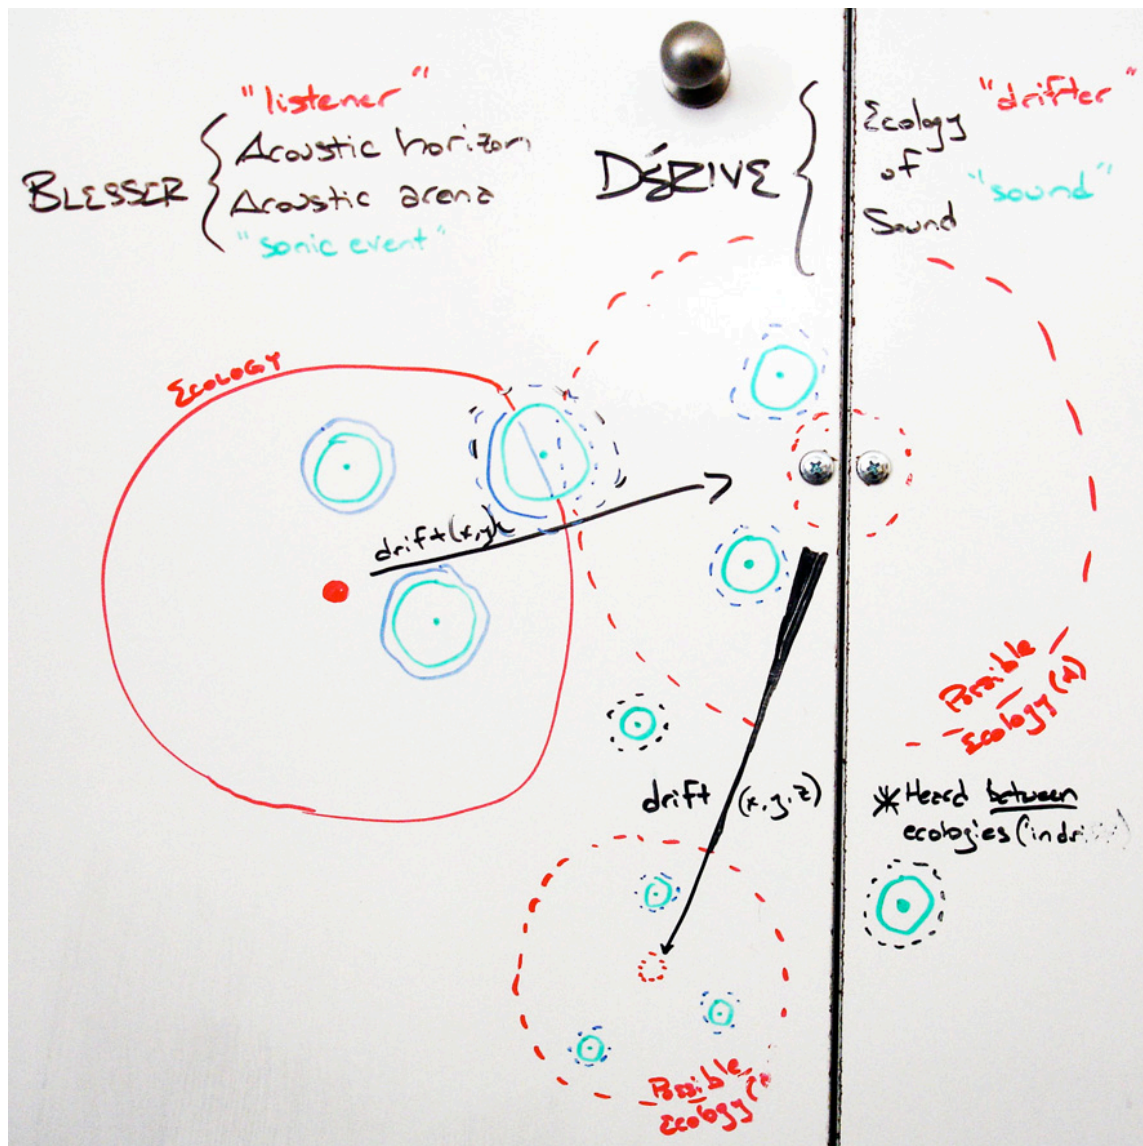 "listener"
BLESSER
Acoustic horizon
Acoustic arena
"sonic event"
DÉRIVE
Ecology
of
Sound
"drifter"
"sound"
ECOLOGY
drift (x,y)
Possible
Ecology
drift (x,y,z)
* Heard between
ecologies
Possible
Ecology